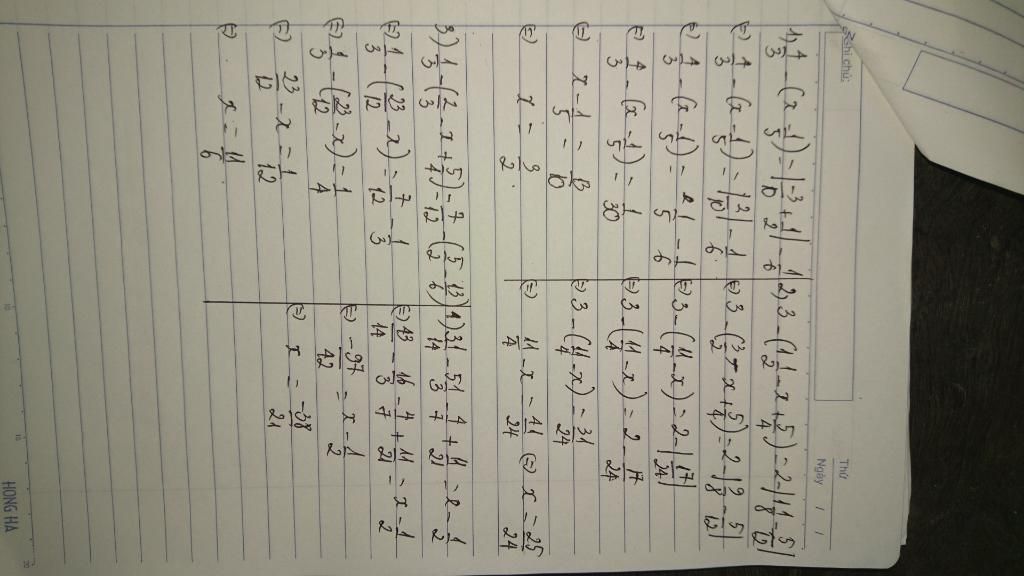 Ghi chú:
Thứ
Ngày / /
1) 4/3 - (x - 1/5) = |-3/10 + 1/2| - 1/6
(=) 4/3 - (x - 1/5) = |2/10| - 1/6
(=) 4/3 - (x - 1/5) = 1/5 - 1/6
(=) 4/3 - (x - 1/5) = 1/30
(=) x - 1/5 = 13/10
(=) x = 3/2
2) 3 - (1 1/2 - x + 5/4) = 2 - |1 1/8 - 5/12|
(=) 3 - (3/2 - x + 5/4) = 2 - |9/8 - 5/12|
(=) 3 - (11/4 - x) = 2 - |17/24|
(=) 3 - (11/4 - x) = 2 - 17/24
(=) 3 - (11/4 - x) = 31/24
(=) 11/4 - x = 41/24 (=) x = 25/24
3) 1/3 - (2/3 - x + 5/4) = 7/12 - (5/2 - 13/6)
(=) 1/3 - (23/12 - x) = 7/12 - 1/3
(=) 1/3 - (23/12 - x) = 1/4
(=) 23/12 - x = 1/12
(=) x = 11/6
4) 3 1/14 - 5 1/3 - 4/7 + 11/21 = x - 1/2
(=) 43/14 - 16/3 - 4/7 + 11/21 = x - 1/2
(=) -97/42 = x - 1/2
(=) x = -38/21
HONG HA